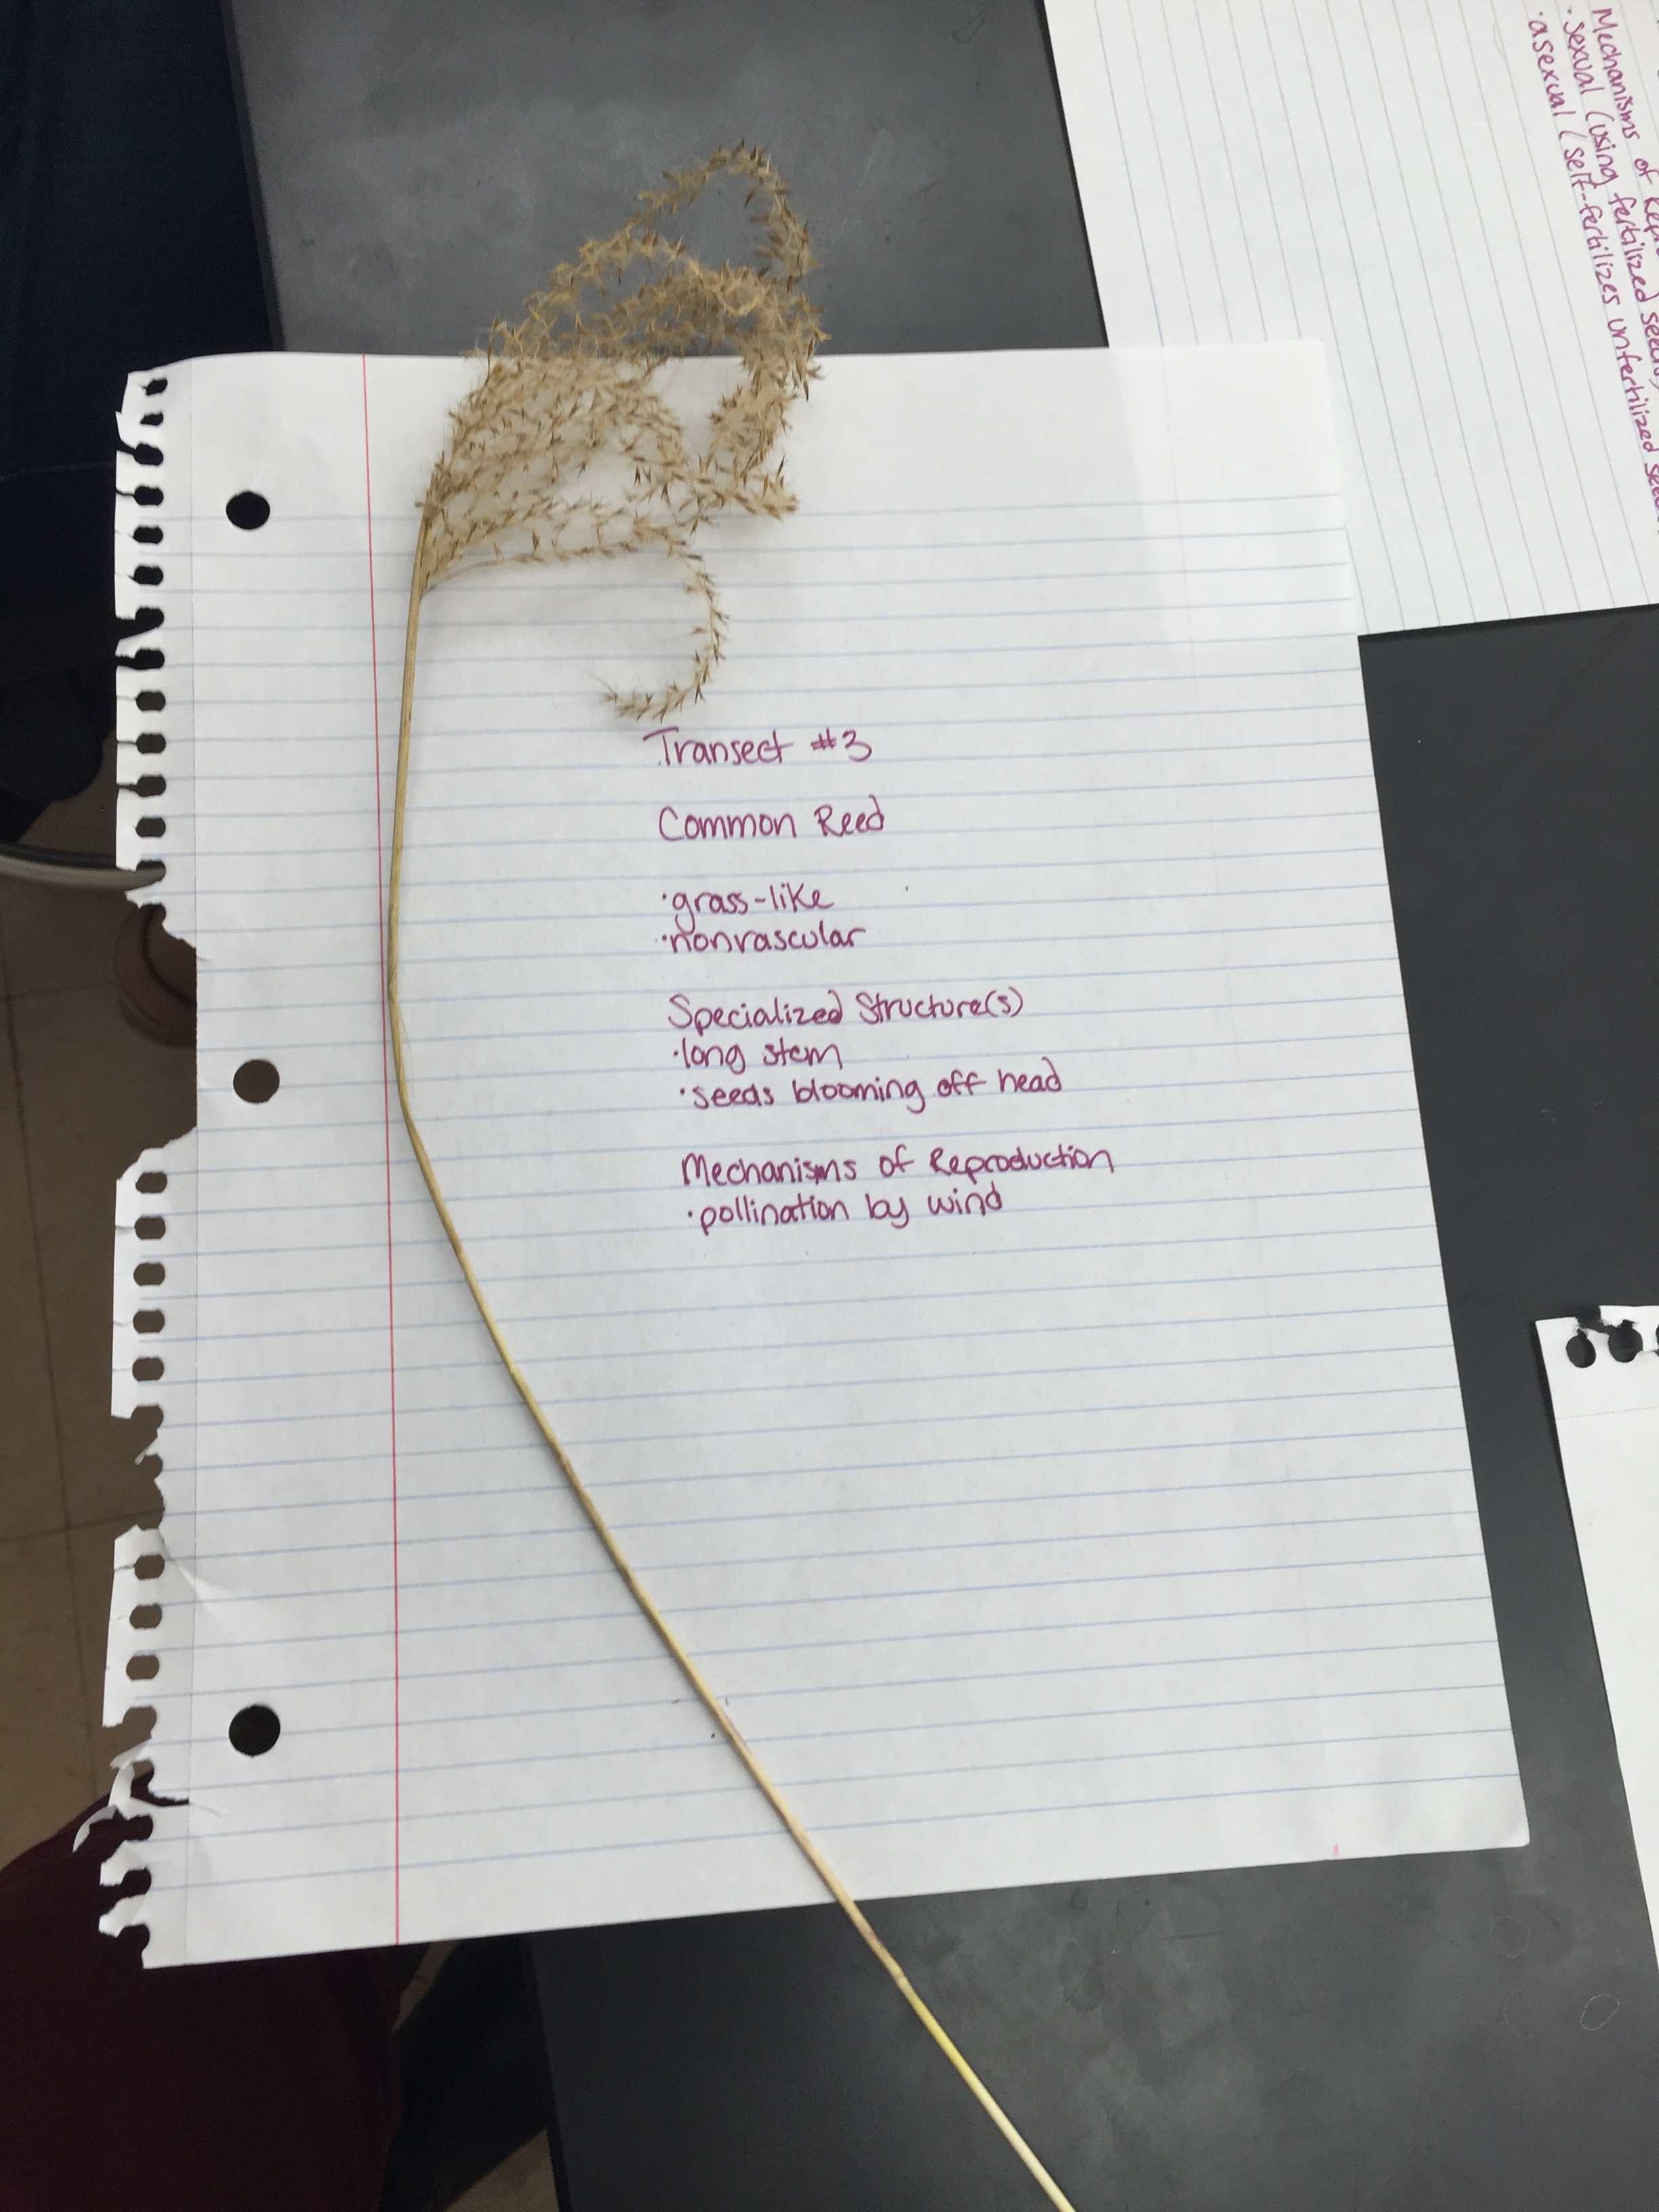 Transect #3
Common Reed
·grass-like
·nonvascular
Specialized Structure(s)
·long stem
·seeds blooming off head
Mechanisms of Reproduction
·pollination by wind
Mechanisms of
·sexual (using fertilized
·asexual (self-fertilizes unfertilized